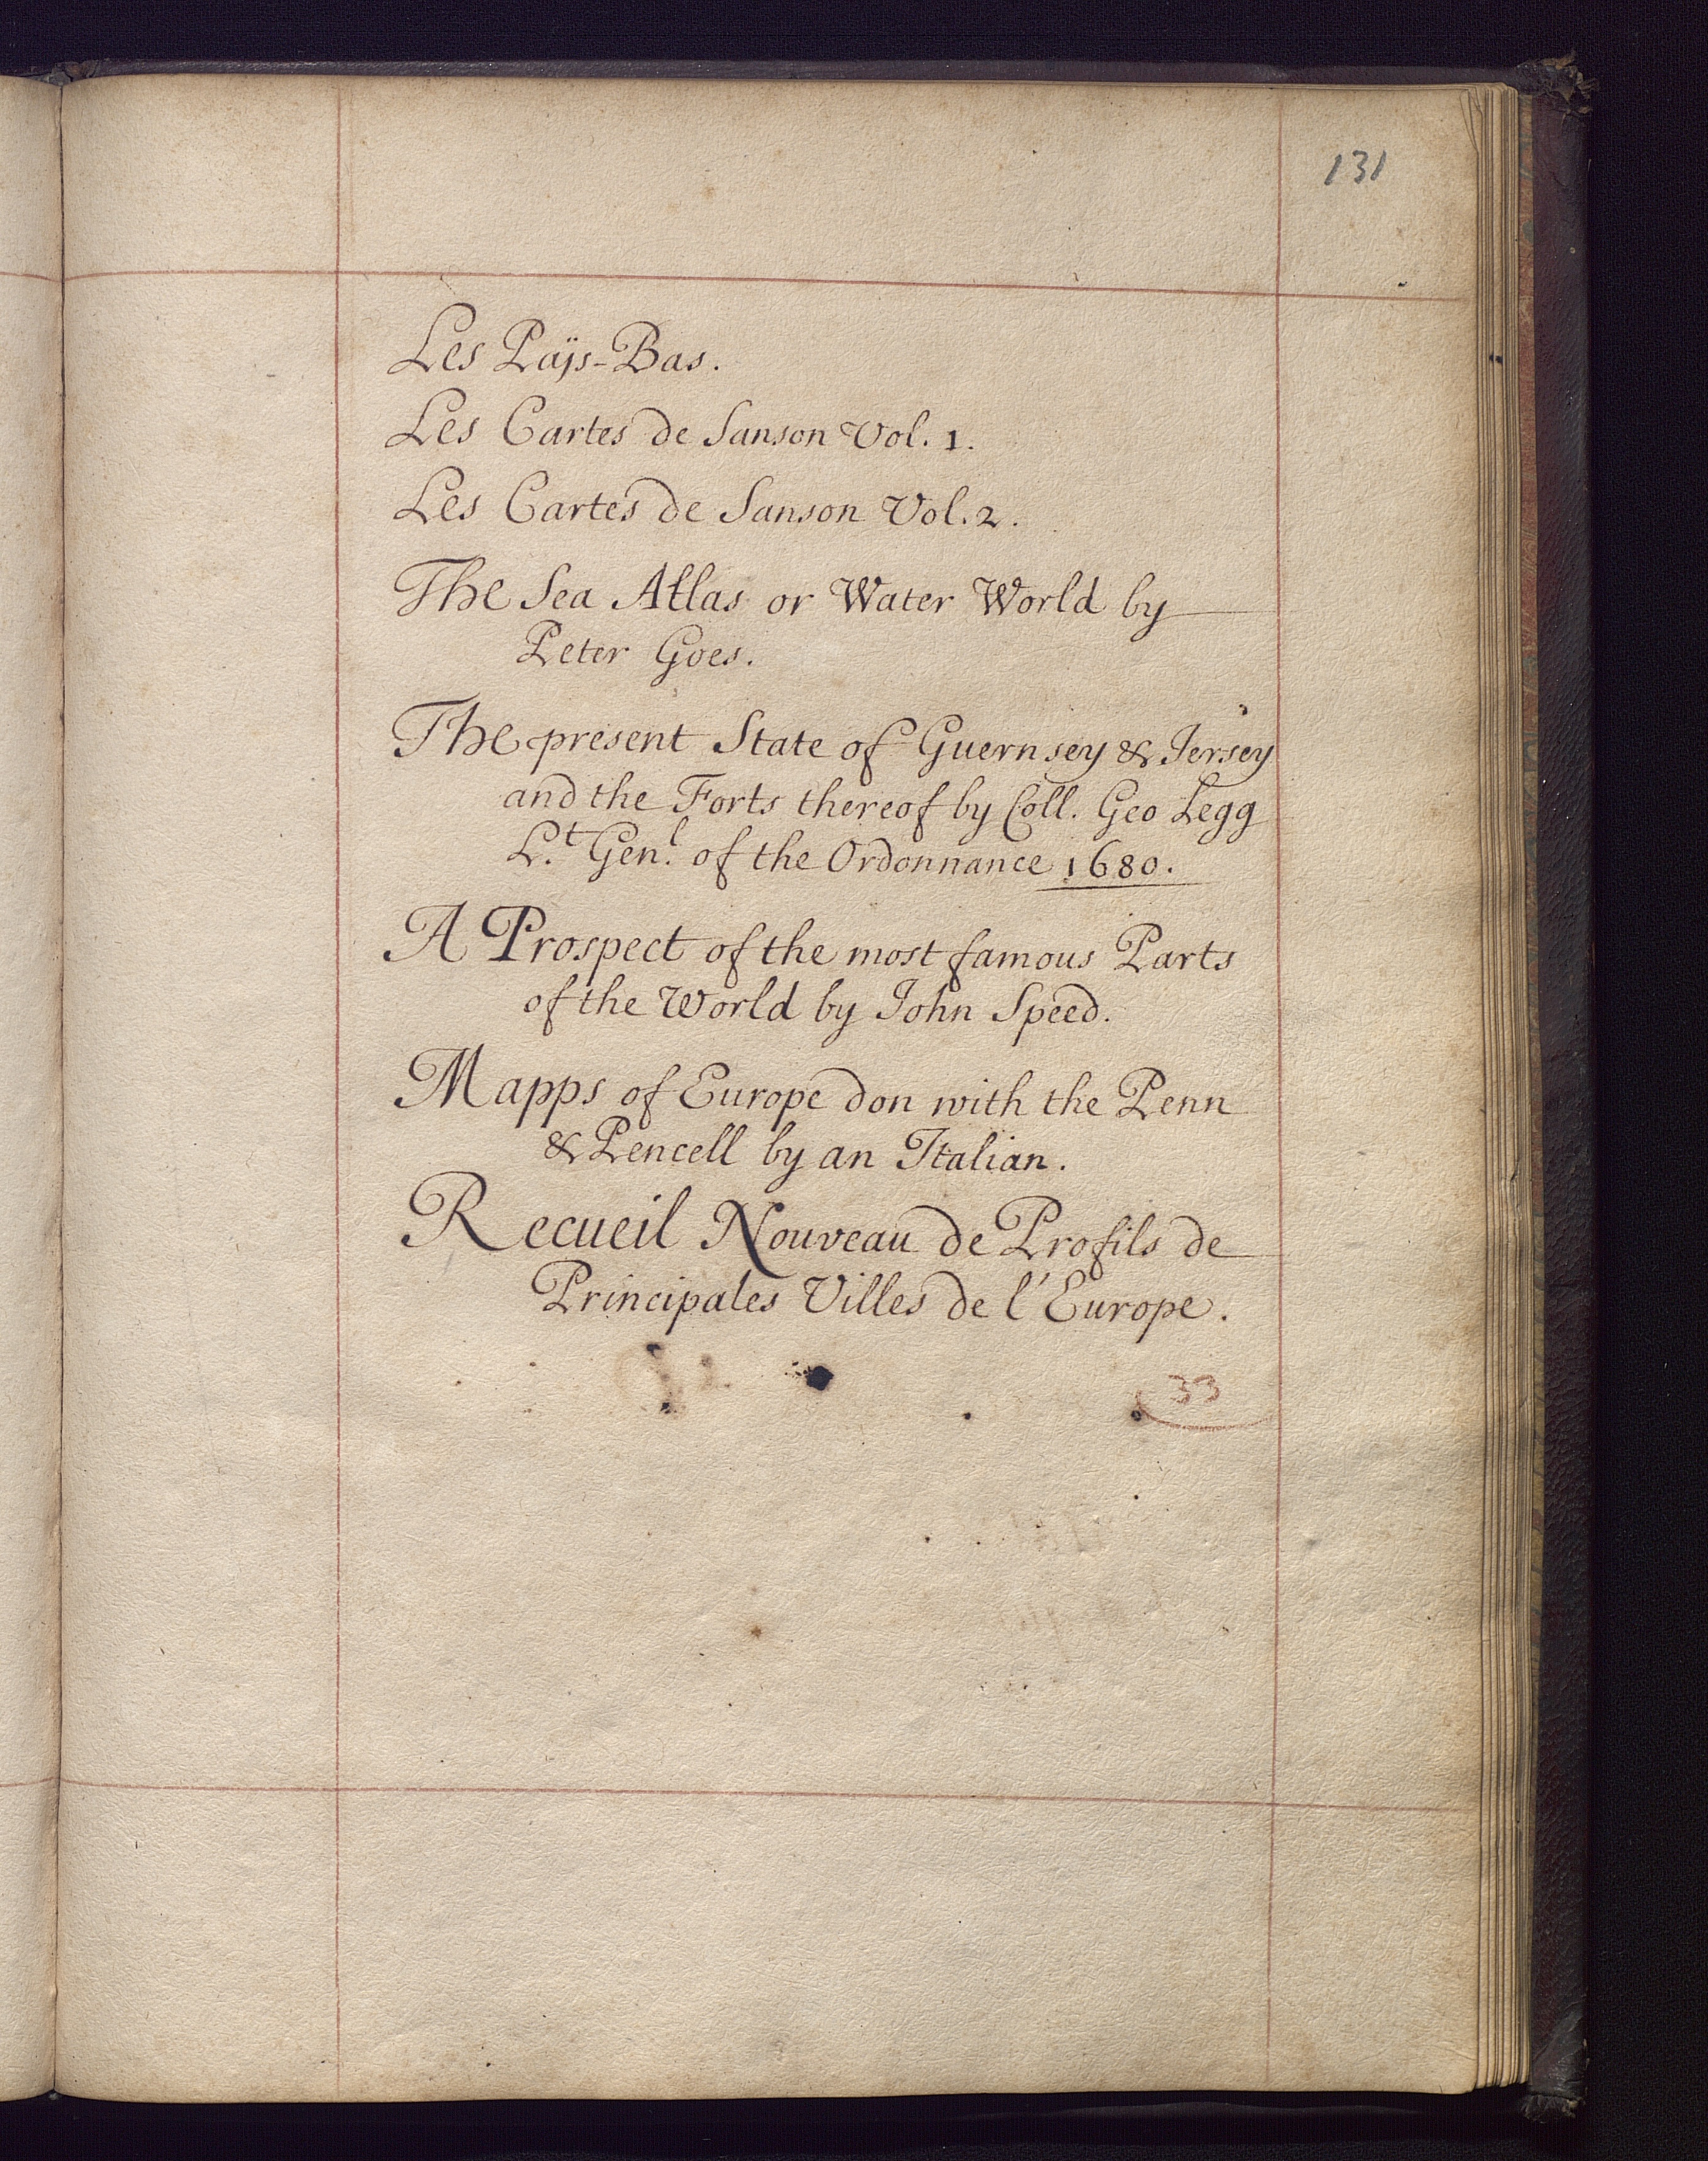 131
Les Païjs-Bas.
Les Cartes de Sanson Vol. 1.
Les Cartes de Sanson Vol. 2.
The Sea Atlas or Water World by
Peter Goes.
The present State of Guernsey & Jersey
and the Forts thereof by Coll. Geo Legg
L.t Gen.l of the Ordonnance 1680.
A Prospect of the most famous Parts
of the World by John Speed.
Mapps of Europe don with the Penn
& Pencell by an Italian.
Recueil Nouveau de Profils de
Principales Villes de l'Europe.
33